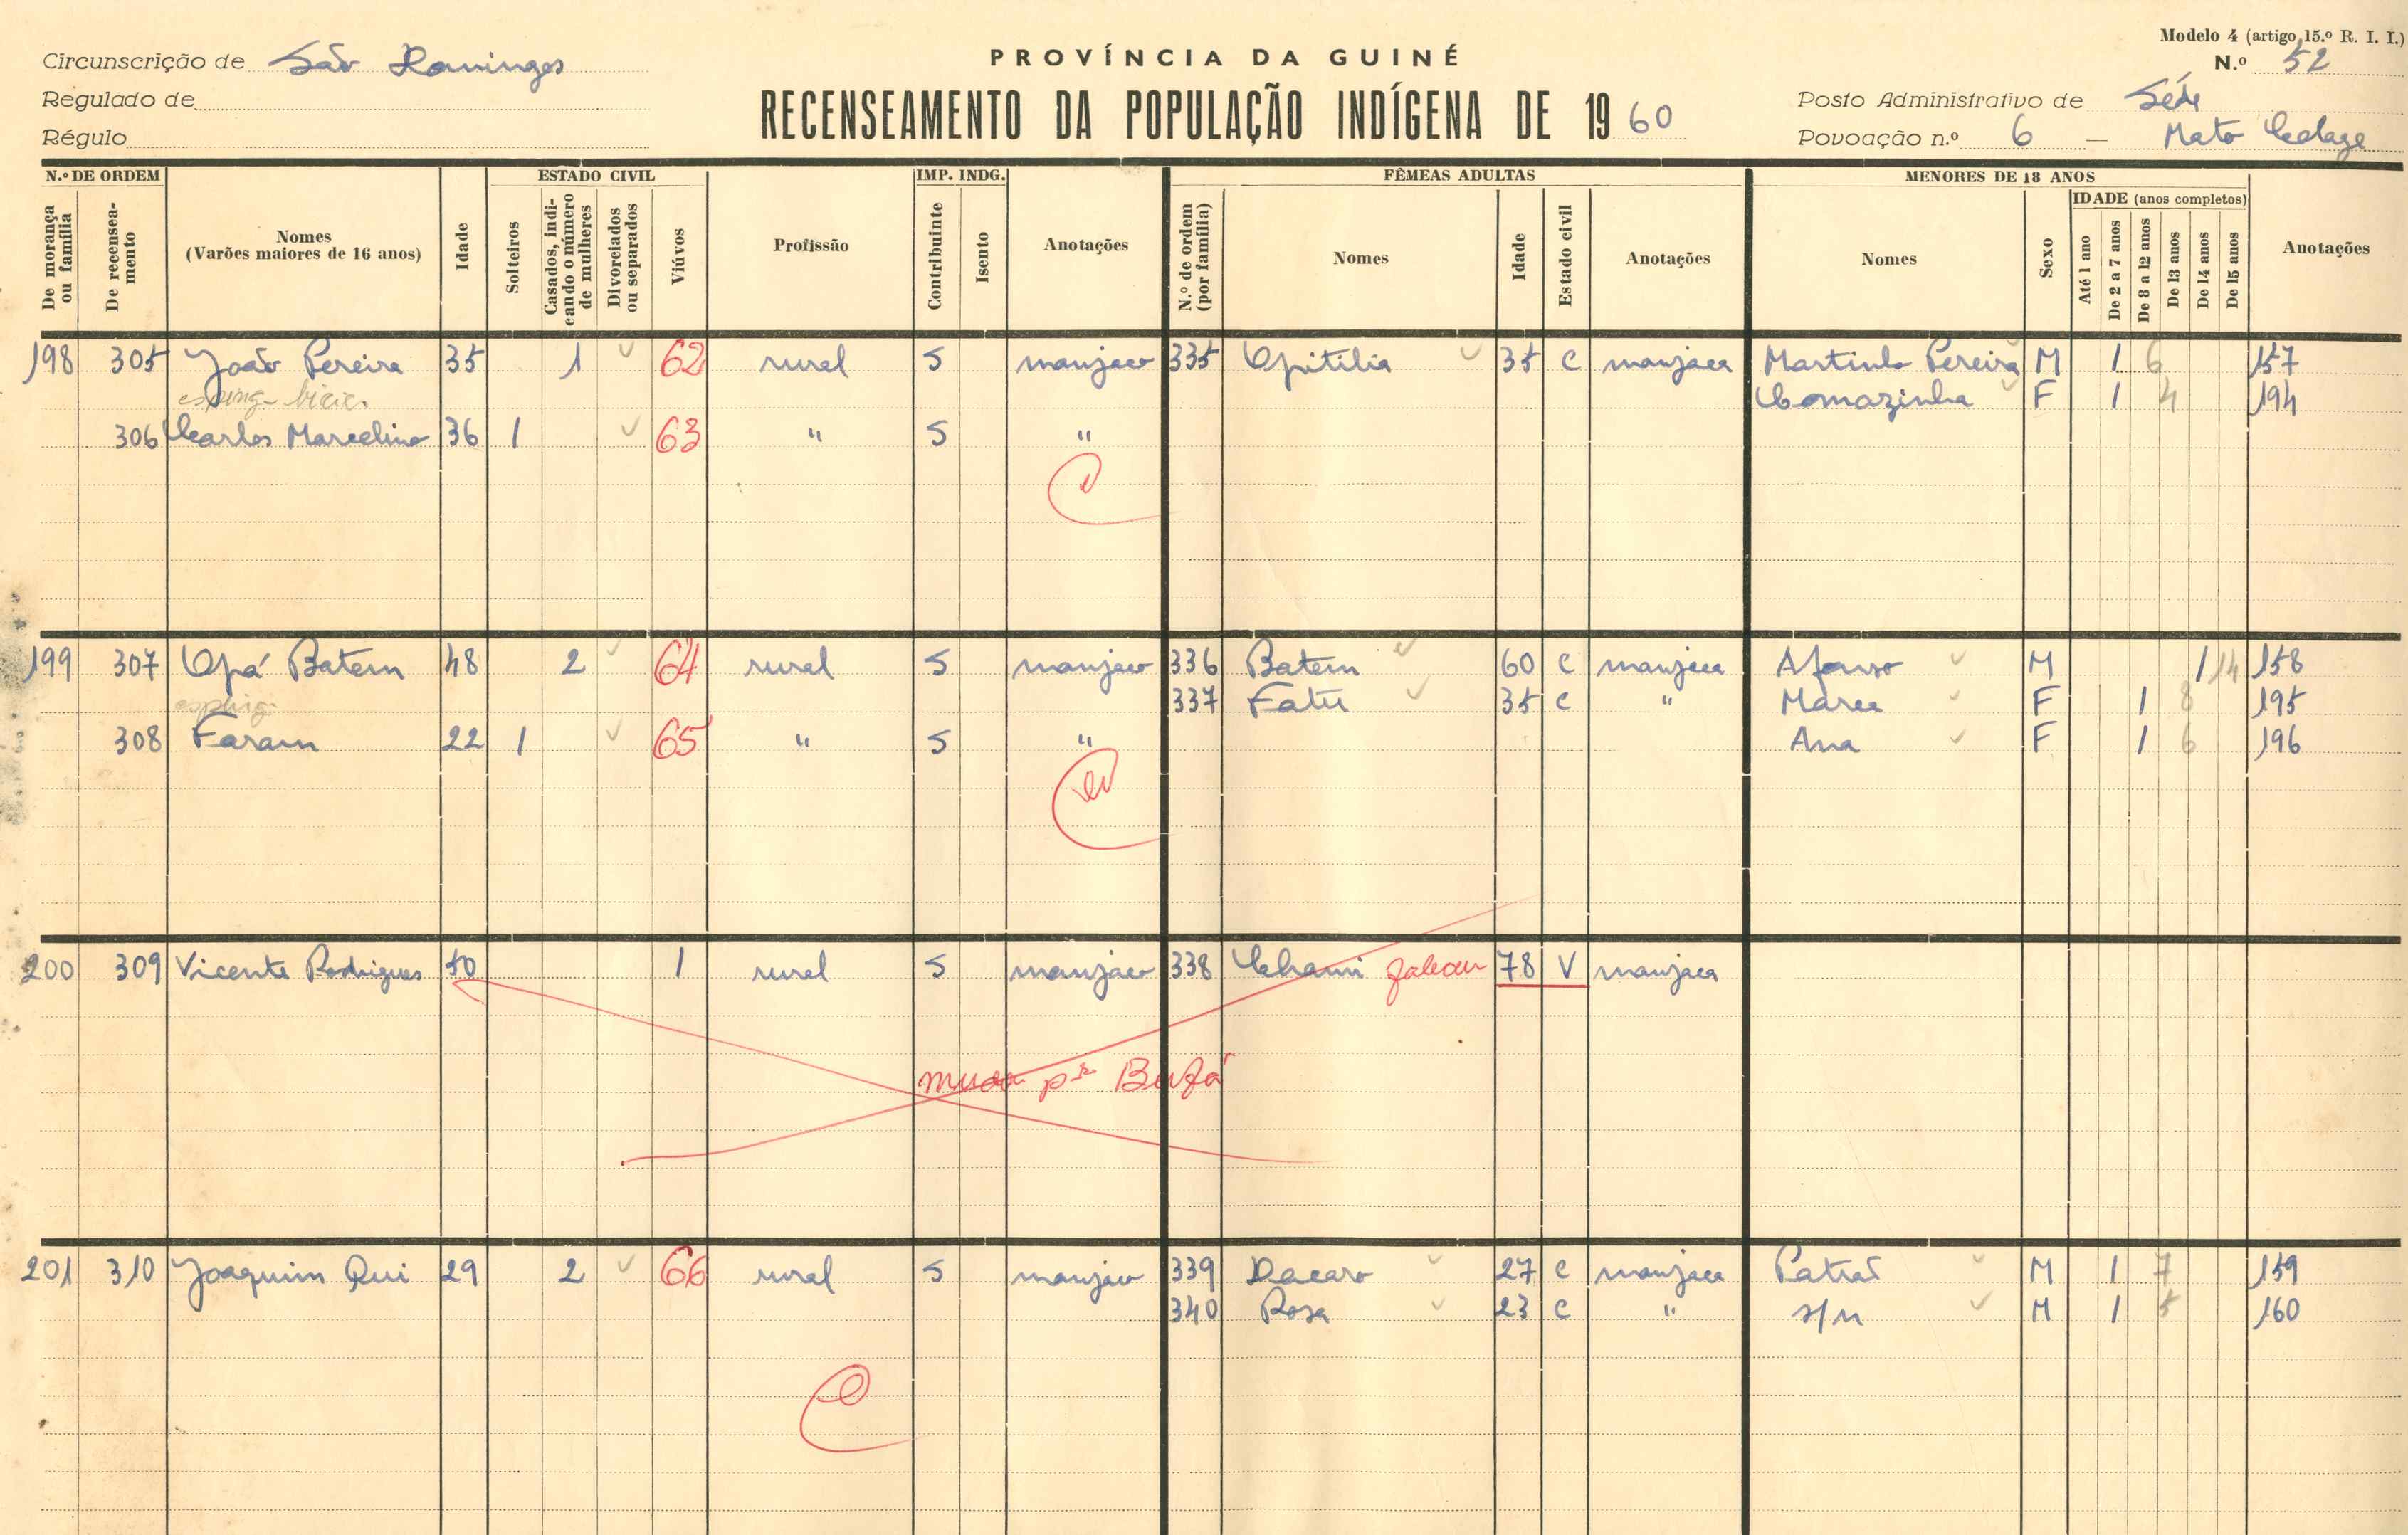 Modelo 4 (artigo 15.º R. I. I.)
Circunscrição de São Domingos
PROVÍNCIA DA GUINÉ
N.º 52
Regulado de
RECENSEAMENTO DA POPULAÇÃO INDÍGENA DE 1960
Posto Administrativo de Séde
Régulo
Povoação n.º 6 — Mato
N.º DE ORDEM
ESTADO CIVIL
IMP. INDG.
FÊMEAS ADULTAS
MENORES DE 18 ANOS
IDADE (anos completos)
De morança ou família
De recenseamento
Nomes
(Varões maiores de 16 anos)
Idade
Solteiros
Casados, indicando o número de mulheres
Divorciados ou separados
Viúvos
Profissão
Contribuinte
Isento
Anotações
N.º de ordem (por família)
Nomes
Idade
Estado civil
Anotações
Nomes
Sexo
Até 1 ano
De 2 a 7 anos
De 8 a 12 anos
De 13 anos
De 14 anos
De 15 anos
Anotações
198 305 João Pereira 35 1 62 rural S manjaco 335 35 C manjaca Martinho Pereira M 1 6 157
F 1 4 194
306 Carlos Marcelino 36 1 63 " S "
199 307 Upá Batem 48 2 64 rural S manjaco 336 Batem 60 C manjaca Afonso M 1 14 158
337 Fatu 35 C " F 1 8 195
308 Faram 22 1 65 " S " Ana F 1 6 196
200 309 Vicente Rodrigues 50 1 rural S manjaco 338 78 V manjaca
201 310 Joaquim Qui 29 2 66 rural S manjaco 339 Dacaro 27 C manjaca M 1 7 159
340 Rosa 23 C " s/n M 1 5 160